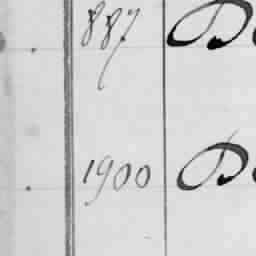 887
1900